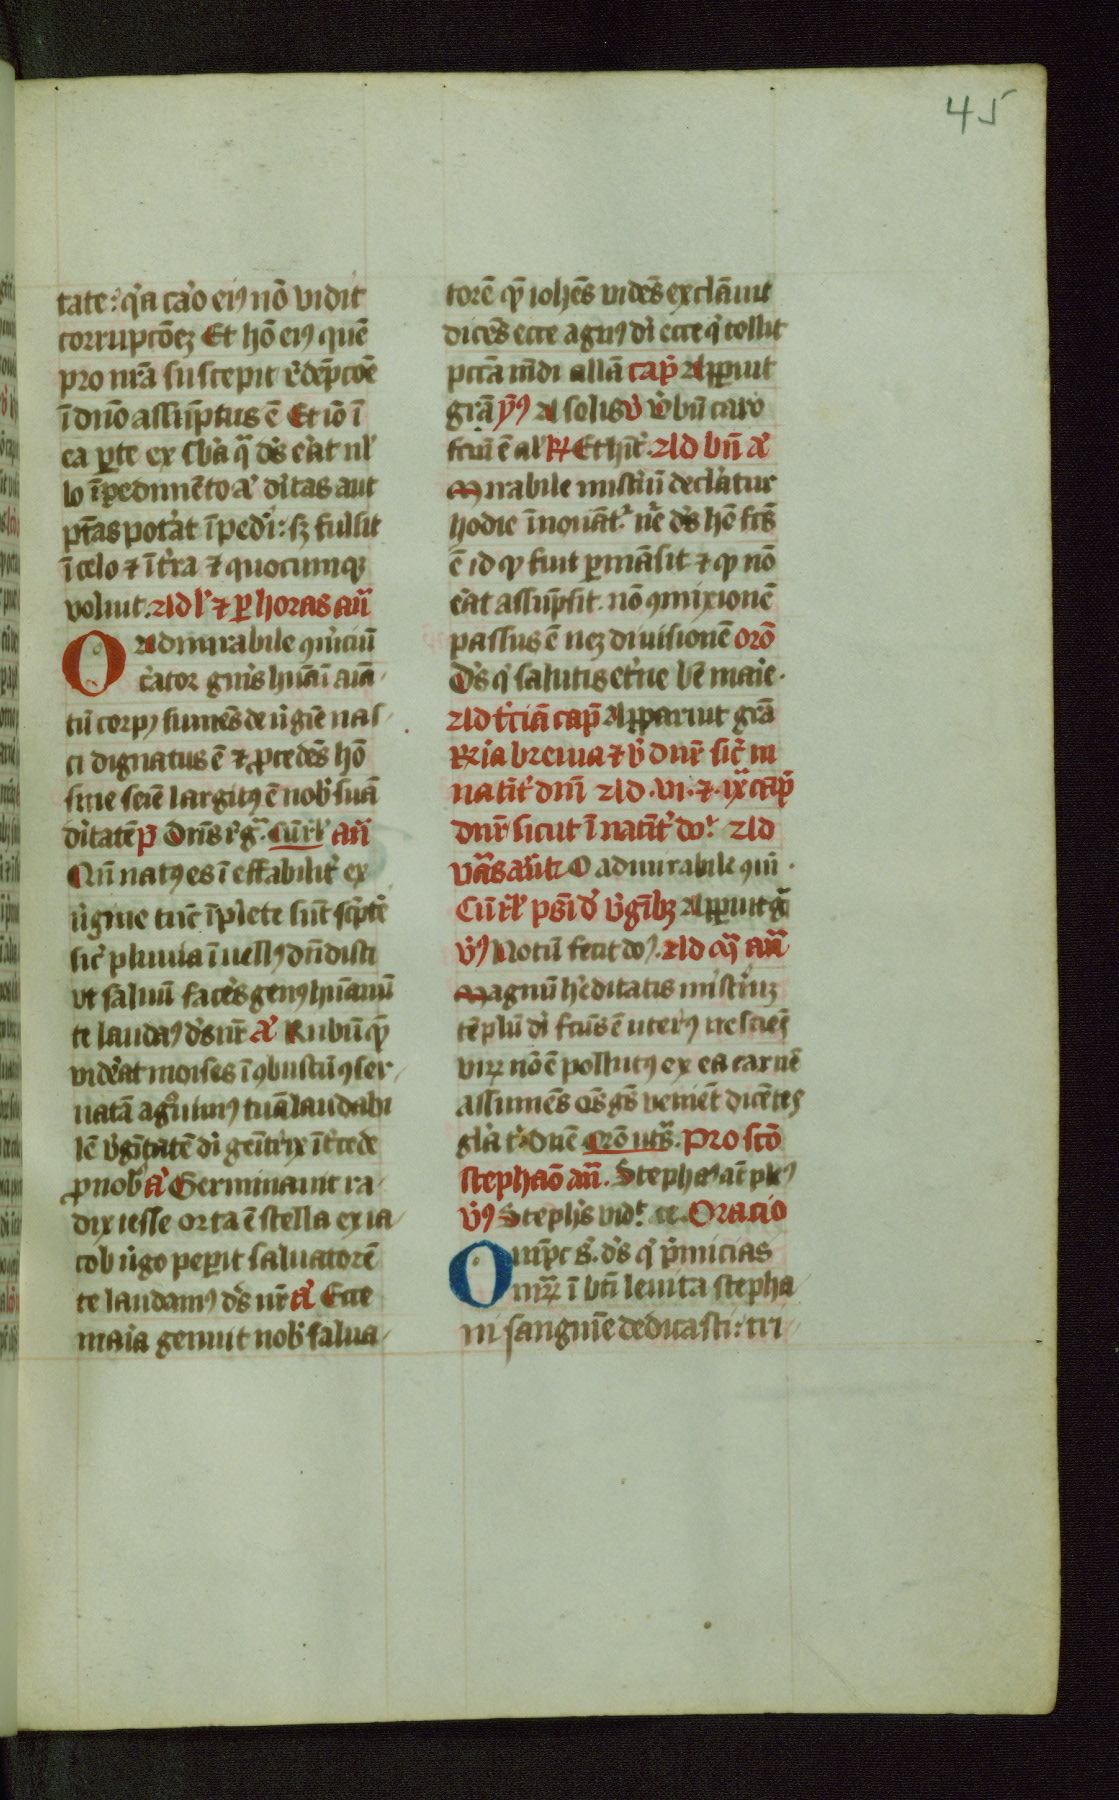 45
tate: q̇a cȧo eiꝰ nō vidit
corrupcōeꝫ Et hō eiꝰ quē
pro nr̄a suscepit redēpcōe
ī dn̄o assūptus ē Et iō ī
ea ꝑte ex sb̄a q̄ dꝰs erat nl̓
lo īpedimēto aꝰ dītas aut
pt̄as poterat īpedi: sꝫ fulsit
ī celo ⁊ ī tr̄ra ⁊ quocumqꝫ
voluit. Ad lꝰ ⁊ ꝑ horas an̄
O Admirabile ꝯm̄ciū
creator gn̄is hūāī aīa
tū corpꝰ sumēs de v̇gīe nas
ci dignatus ē ⁊ ꝓcedēs hō
sine seīe largitꝰ ē nob̓ suā
dītatē pꝰ Dn̄s rēg. Cūr̄l̓ an̄
Qūn natꝰ es ī effabilit̓ ex
v̇gine tūc īplete sūt sc̄pte
sic̓ pluuia ī uellꝰ dn̄disti
vt saluū facēs genꝰ hūanū
te laudaꝰ dꝰs nr̄ aꝰ Rubū qꝫ
viderat moises ī ꝯbustū ꝯser
uatā agnouimꝰ tuā laudabi
lē v̇gītatē di genitrix īt̓cede
ꝓ nob̓ aꝰ Germinauit ra
dix iesse orta ē stella ex ia
cob v̇go peꝑit saluatorē
te laudamꝰ dꝰs nr̄ aꝰ Ecce
maīa genuit nob̓ salua
torē qꝫ ioh̄es vidēs exclāuit
dicēs ecce agnꝰ di ecce q̇ tollit
pctā mūdi allā cap̄ Apparuit
grā v̓ꝰ A solis v̓ Verbū caro
fcm̄ ē al̓ R Et hīt̓. Ad bn̄ aꝰ
Mirabile mist̓iū declaratur
hodie īnouāt̓ ne dꝰs hō fcūs
ē id qꝫ fuit ꝑmāsit ⁊ qꝫ nō
erat assūpsit. nō ꝯmixionē
passus ē neqꝫ diuisionē orō
Dꝰs q̇ salutis et̓ne bē maīe.
Ad t̓ciā cap̄ Apparuit grā
R̄ia breuia ⁊ v̓ dn̄r sic̓ in
natīt̓ dn̄i Ad .vi. ⁊ .ix. cap̄
dn̄r sicut ī natīt̓ do. Ad
vās an̄t̓ O admirabile ꝯm̄.
Cūr̄l̓ ps̄i d̓ v̓gībꝫ Apparuit g̊
v̓ꝰ Notū fecit doꝰ. Ad m̄ an̄
Magnū h̓editatis mist̓iuꝫ
tēplū di fcūs ē uterꝰ nesciēs
virꝫ nō ē pollutꝰ ex ea carnē
assumēs oēs gēs veniēt dicētes
glīa t̓ dn̄e Orō uts̄. Pro sct̄o
stephāo an̄. Stephaꝰ at̄ pleꝰ
v̓ꝰ Stephꝰs vidꝰt ce. Oracio
Omp̄c s̓. dꝰs q̇ p̓micias
mr̄ꝫ ī bt̄i leuita stepha
ni sanguīe dedicasti: tri